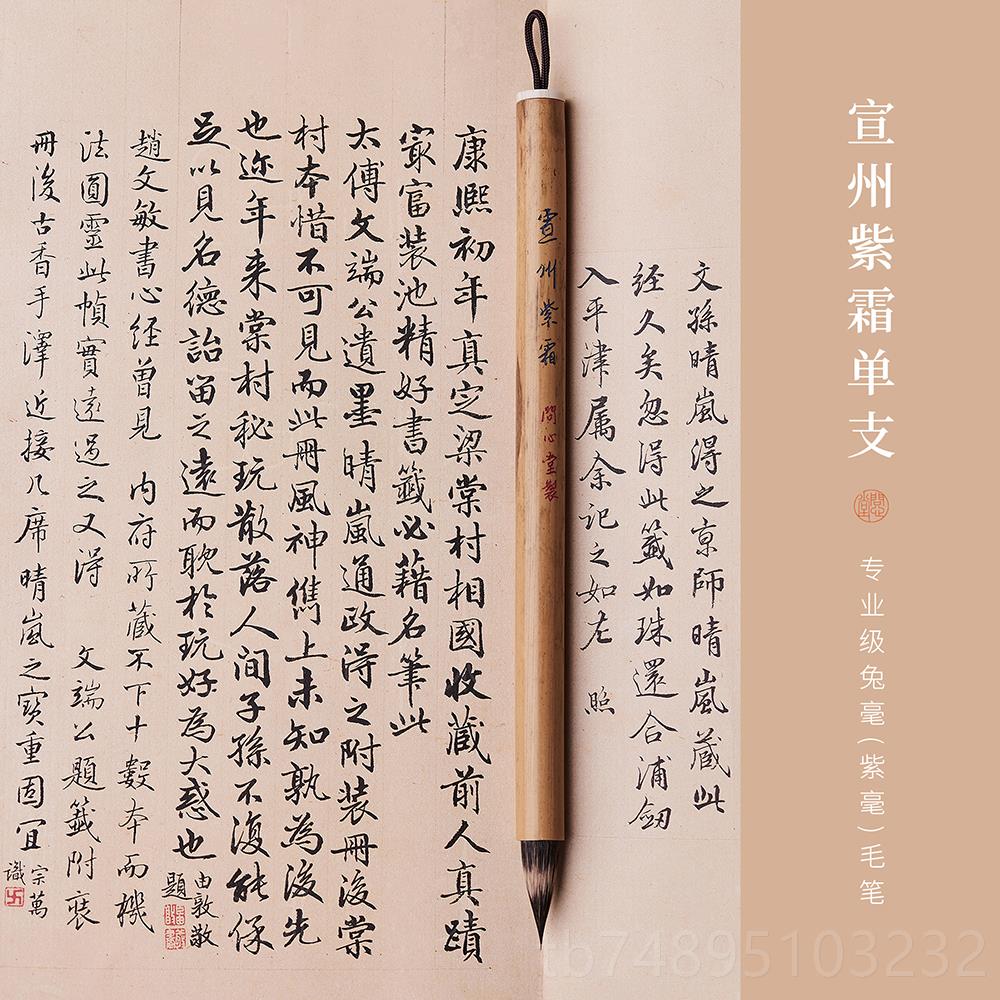 宣州紫霜单支
问心堂
专业级兔毫(紫毫)毛笔
文孫晴嵐得之京師晴嵐蔵此
经久矣忽得此籖如珠還合浦劔
入平津属余记之如左 照
宣州紫霜 問心堂製
康熙初年真定梁棠村相國收蔵前人真蹟
㝡富装池精好書籖必藉名筆此
太傅文端公遺墨晴嵐通政得之附装冊後棠
村本惜不可見而此冊風神儁上未知孰為後先
也迩年来棠村秘玩散落人间子孫不復能保
足以見名德詒留之遠而耽於玩好為大惑也
由敦敬
題
趙文敏書心经曽見 内府所蔵不下十數本而機
法圓靈此幀實遠過之又得 文端公題籖附裝
冊後古香手澤近接几席晴嵐之寳重固宜
宗萬
識
tb74895103232